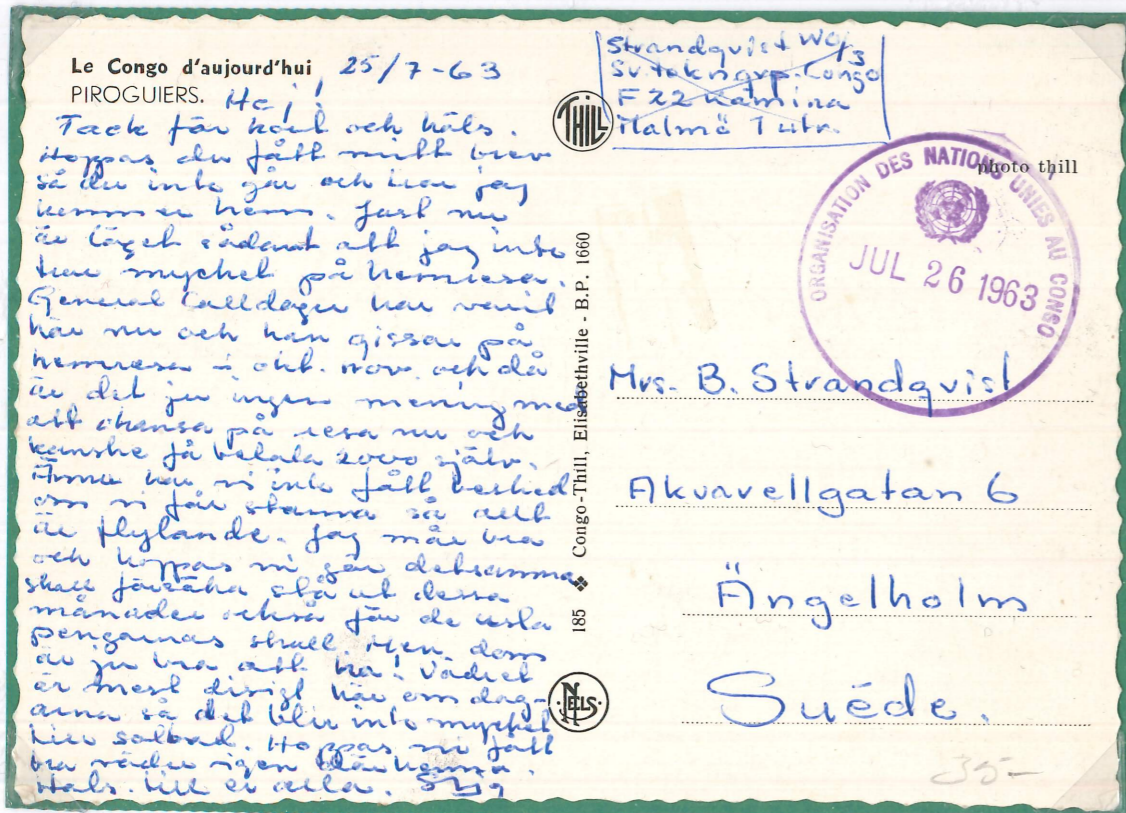 Le Congo d'aujourd'hui
PIROGUIERS.
25/7-63
Hej!
Tack för kort och häls.
Hoppas du fått mitt brev
så du inte går och tror jag
kommer hem. Just nu
är läget sådant att jag inte
tror mycket på hemresa.
General har varit
här nu och han gissar på
hemresa i okt. nov. och då
är det ju ingen mening med
att chansa på resa nu och
kanske få betala 2000 själv.
Ännu har vi inte fått besked
om vi får stanna så allt
är flytande. Jag mår bra
och hoppas ni gör detsamma
skall försöka stå ut dessa
månader också för de usla
pengarnas skull. Men dom
är ju bra att ha! Vädret
är mest disigt här om dag-
arna så det blir inte mycket
solbad. Hoppas ni fått
bra väder igen där hemma.
Häls. till er alla. Stig
THILL
185 ❖ Congo-Thill, Elisabethville - B.P. 1660
NELS
Strandqvist WO/3
Sv. tekn grp. Congo
F 22 Kamina
Malmö 1 utr.
photo thill
ORGANISATION DES NATIONS UNIES AU CONGO
JUL 26 1963
Mrs. B. Strandqvist
Akvavellgatan 6
Ängelholm
Suéde.
35-